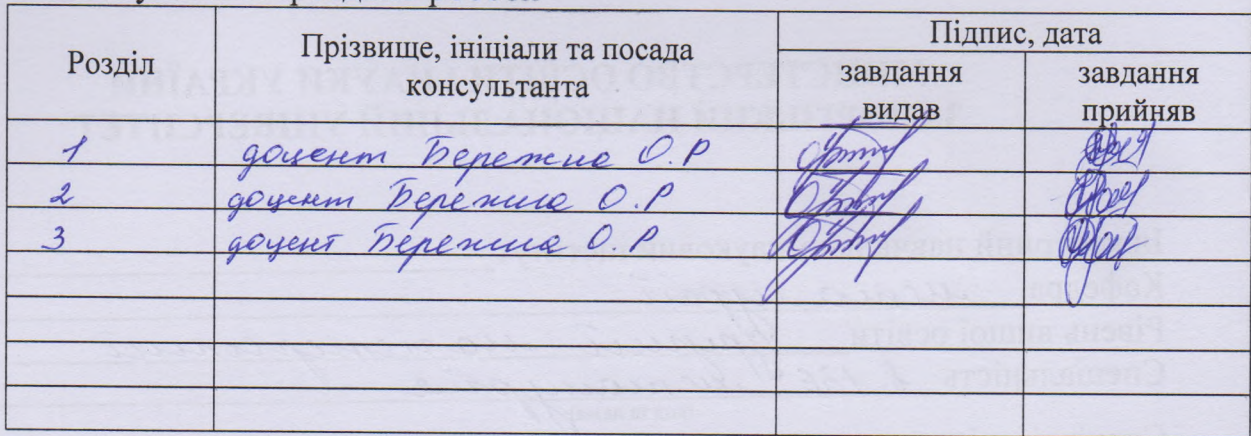 Розділ
Прізвище, ініціали та посада
консультанта
Підпис, дата
завдання
видав
завдання
прийняв
1 доцент Бережна О.Р
2 доцент Бережна О.Р
3 доцент Бережна О.Р.